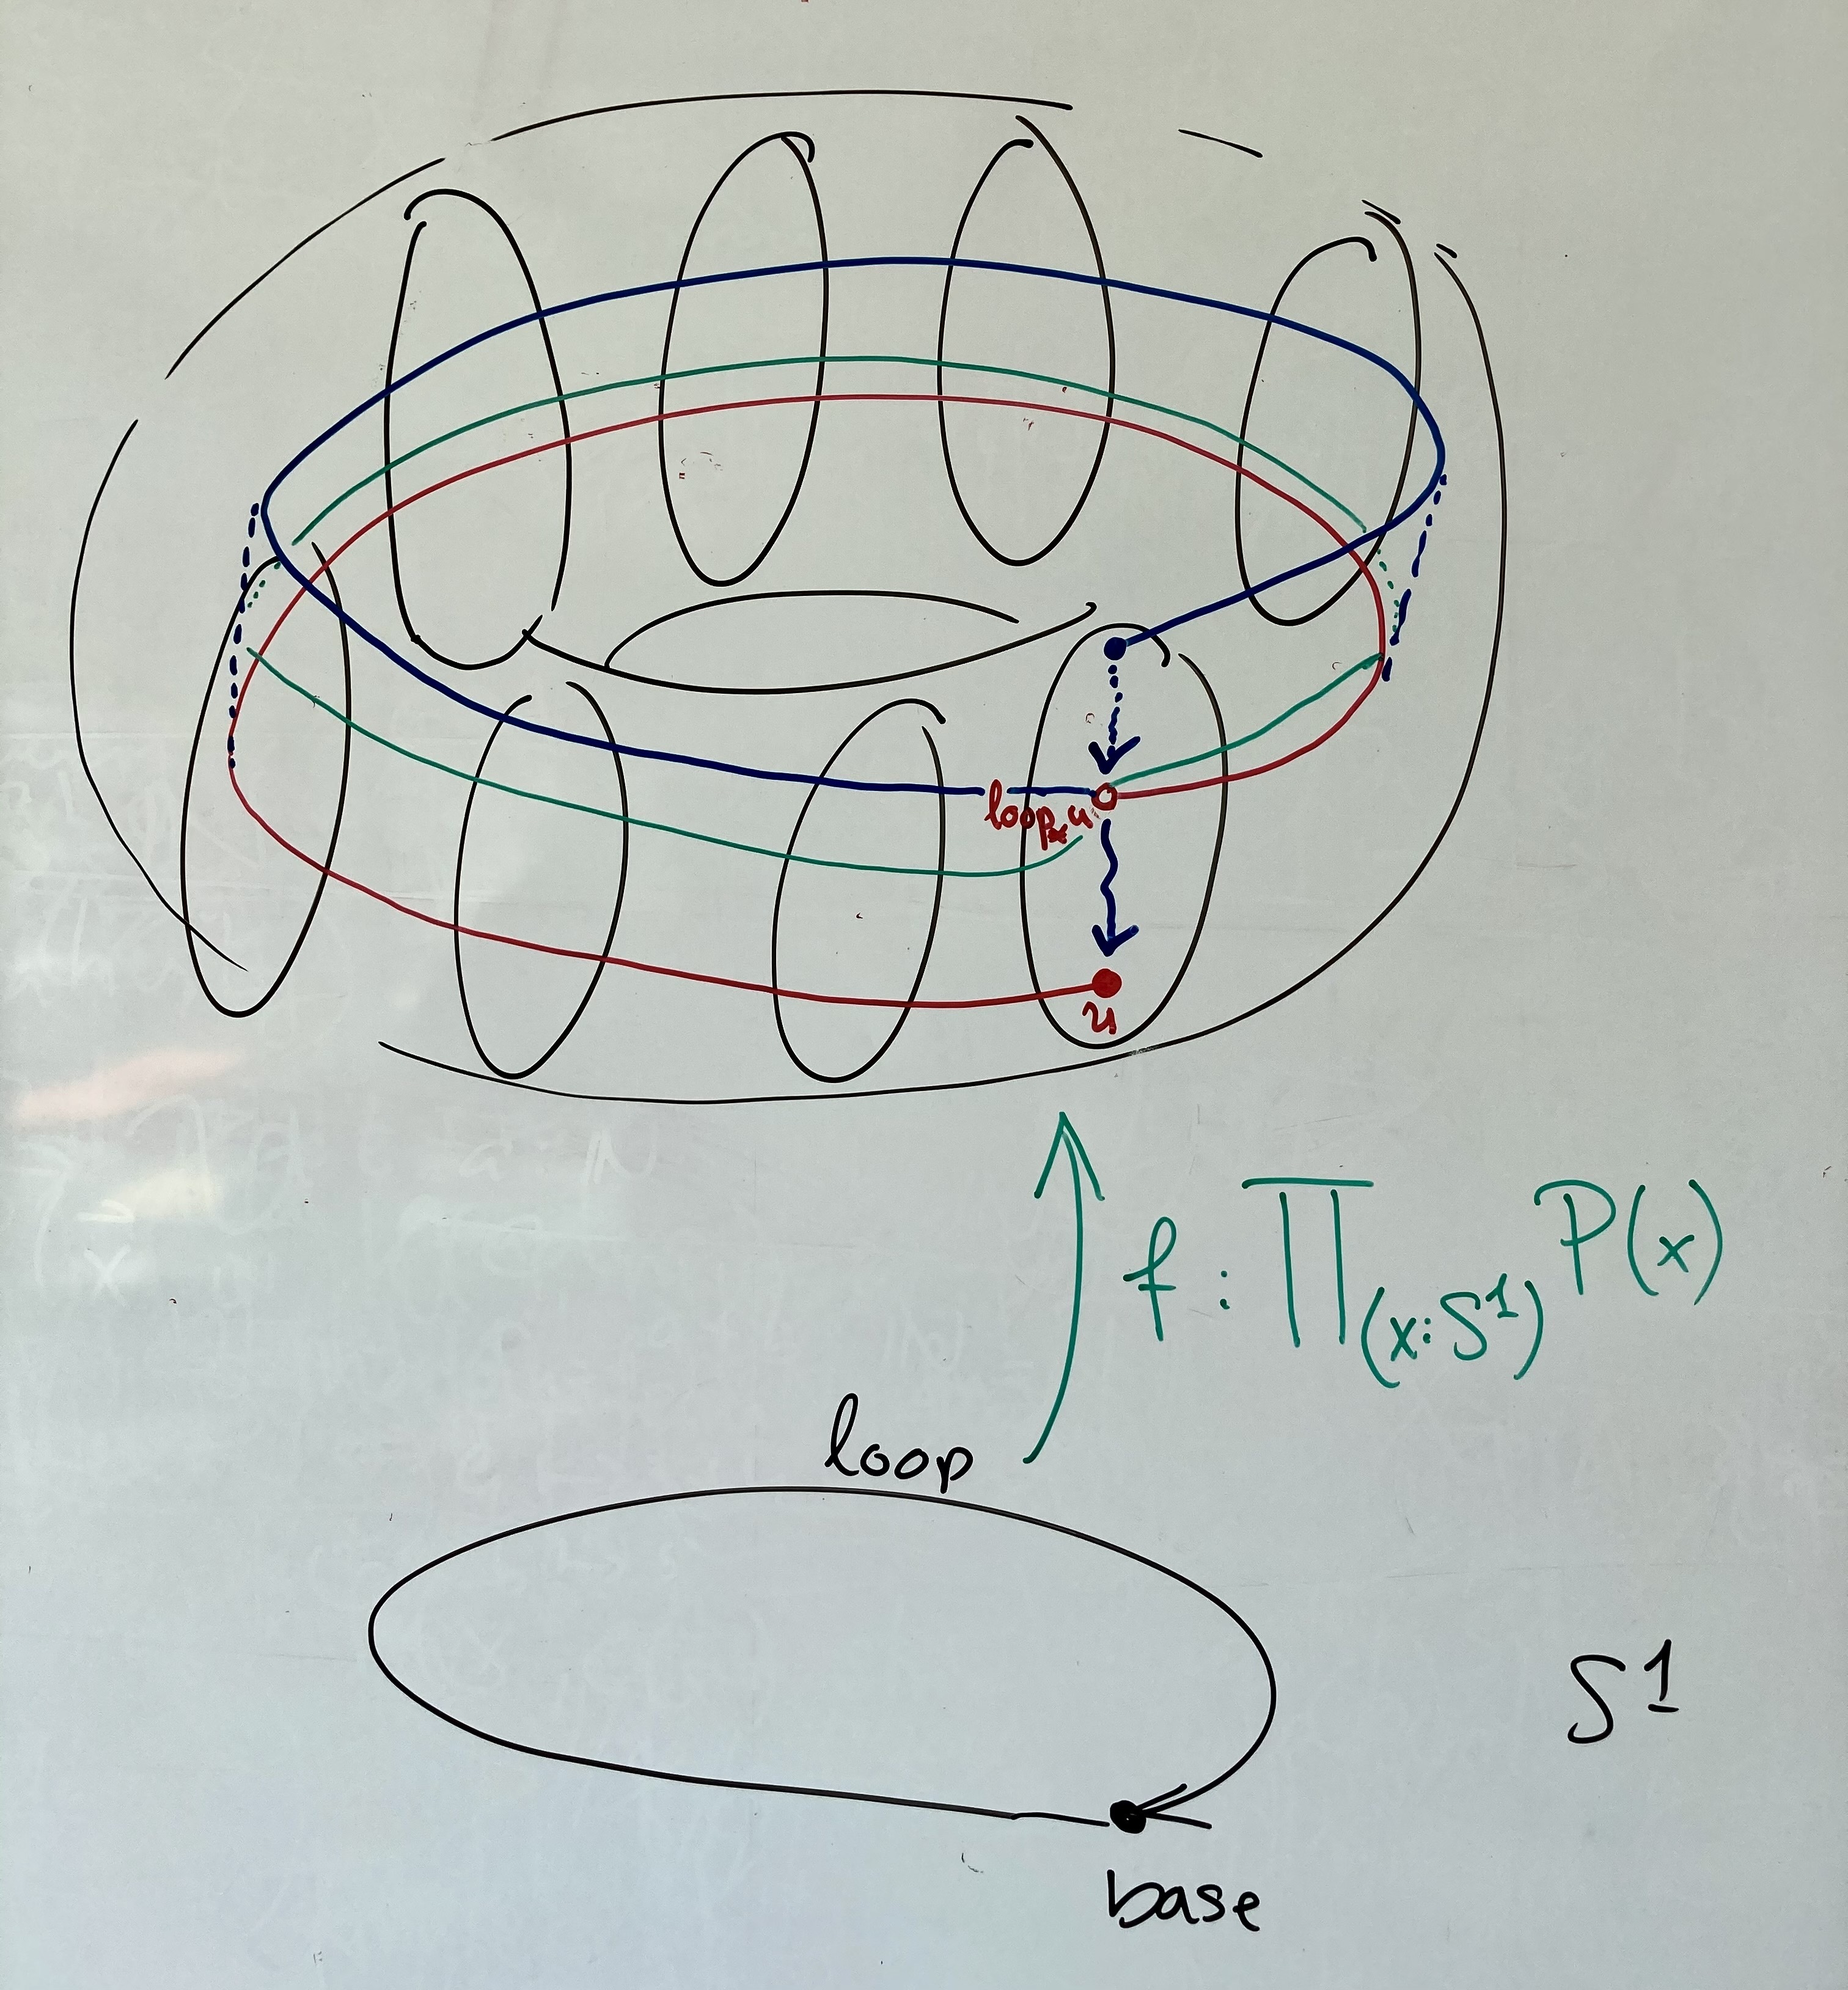 loop* u
u
f : ∏(x:S¹) P(x)
loop
S¹
base